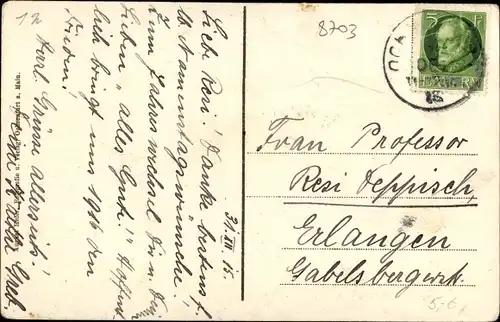 12
8703
31.XII.15.
Liebe Resi! Danke bestens f.
Namenstagswünsche.
Zum Jahreswechsel Dir u. Deinen
Lieben "alles Gute." Hoffent
lich bringt uns 1916 den
Frieden!
Herzl. Grüsse allerseits!
5 PF
BAYERN
OCH
16
Frau Professor
Resi Deppisch,
Erlangen
Gabelsbergerstr.
5,-6